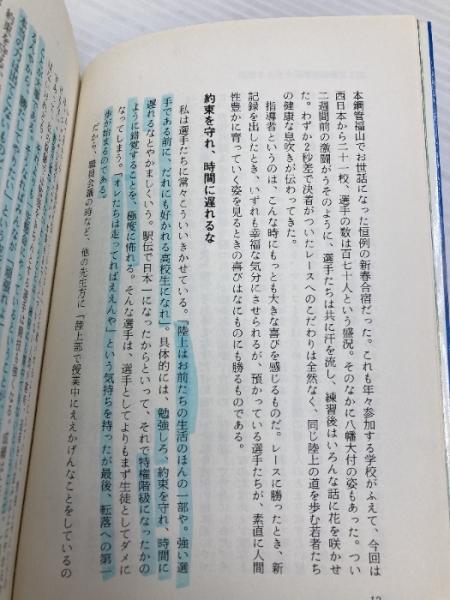 本鋼管福山でお世話になった恒例の新春合宿だった。これも年々参加する学校がふえて、今回は
西日本から二十一校、選手の数は百七十人という盛況。そのなかに八幡大付の姿もあった。つい
二週間前の激闘がうそのように、選手たちは共に汗を流し、練習後はいろんな話に花を咲かせ
た。わずか2秒差で決着がついたレースへのこだわりは全然なく、同じ陸上の道を歩む若者たち
の健康な息吹きが伝わってきた。
指導者というのは、こんな時にもっとも大きな喜びを感じるものだ。レースに勝ったとき、新
記録を出したとき、いずれも幸福な気分にさせられるが、預かっている選手たちが、素直に人間
性豊かに育っていく姿を見るときの喜びはなにものにも勝るものである。
約束を守れ、時間に遅れるな
私は選手たちに常々こういいきかせている。「陸上はお前たちの生活のほんの一部や。強い選
手である前に、だれにも好かれる高校生になれ」。具体的には、勉強しろ、約束を守れ、時間に
遅れるなとやかましくいう。駅伝で日本一になったからといって、それで特権階級になったかの
ように錯覚することを、極度に怖れる。そんな選手は、選手としてよりもまず生徒としてダメに
なってしまう。「オレたちは走ってればええんや」という気持ちを持ったが最後、転落への第一
歩が始まるのである。
だから、職員会議の時など、他の先生方に「陸上部で授業中にええかげんなことをしているの